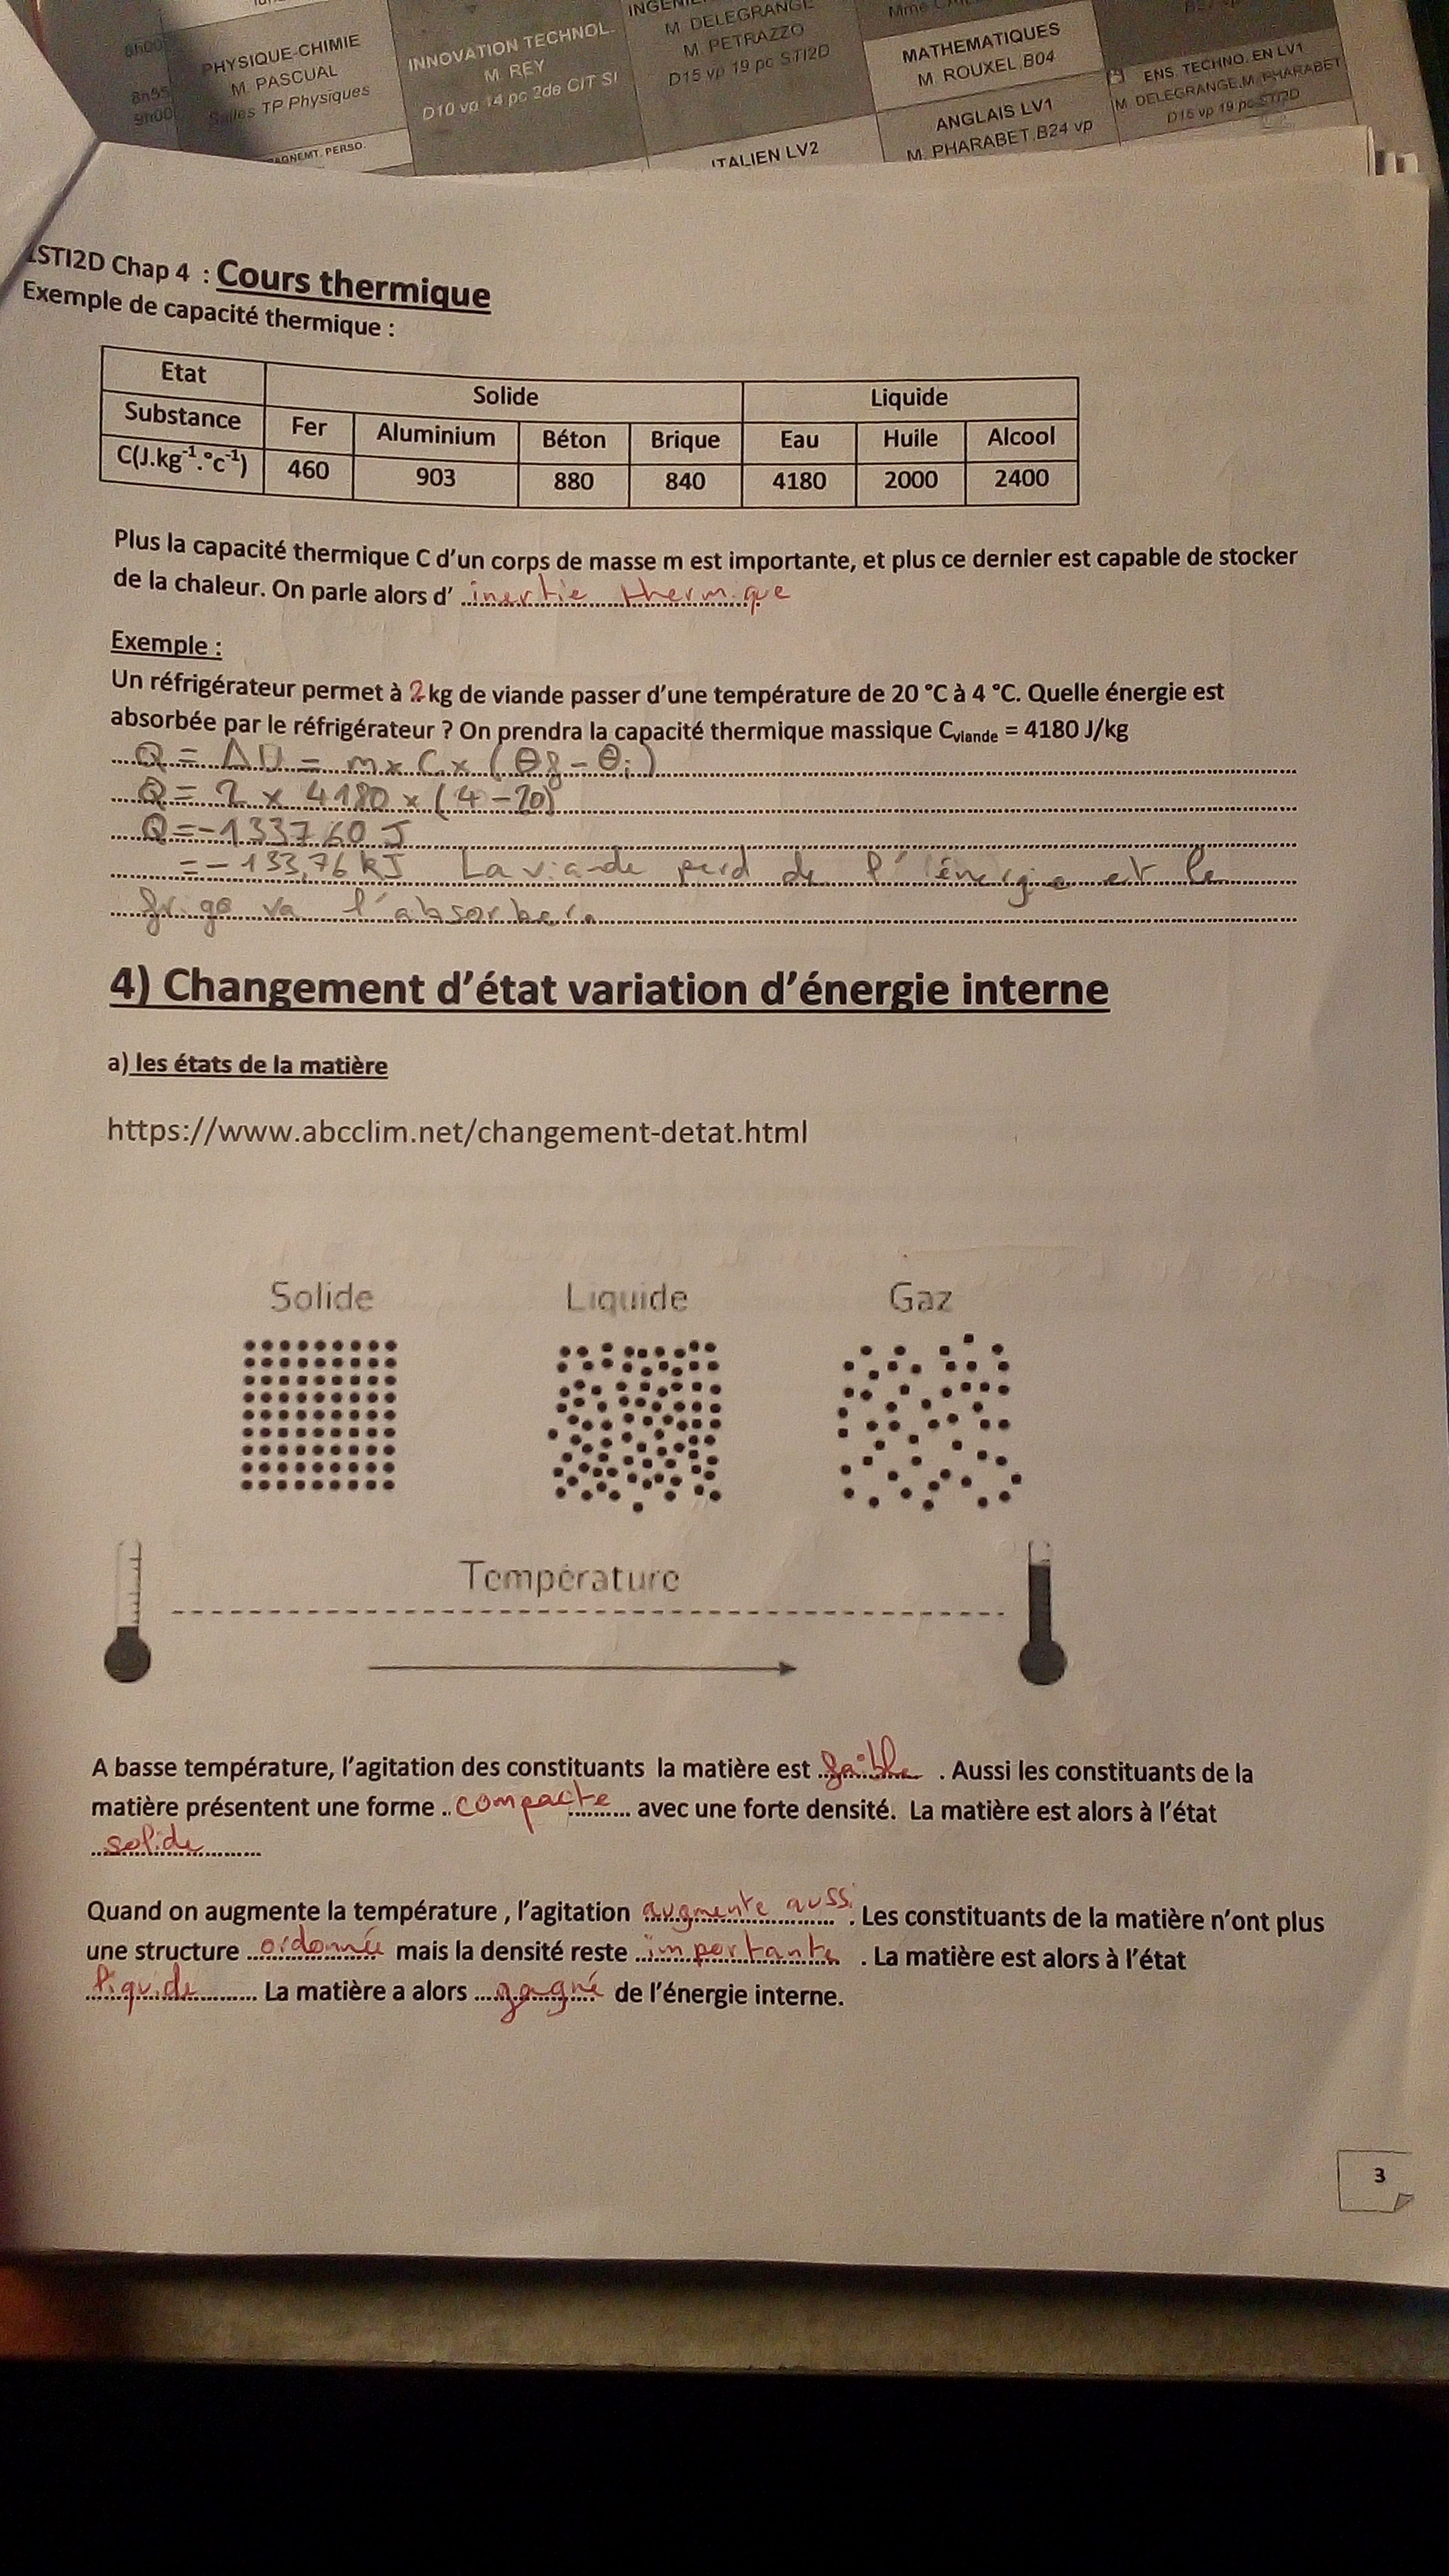 8h00
PHYSIQUE-CHIMIE
M. PASCUAL
Salles TP Physiques
8h55
9h00
INNOVATION TECHNOL.
M. REY
D10 vp 14 pc 2de CIT SI
M. DELEGRANGE
M. PETRAZZO
D15 vp 19 pc STI2D
ITALIEN LV2
MATHEMATIQUES
M. ROUXEL.B04
ANGLAIS LV1
M. PHARABET.B24 vp
ENS. TECHNO. EN LV1
M. DELEGRANGE,M. PHARABET
D15 vp 19 pc STI2D
1STI2D Chap 4 : Cours thermique
Exemple de capacité thermique :
Etat Solide Liquide
Substance Fer Aluminium Béton Brique Eau Huile Alcool
C(J.kg⁻¹.°c⁻¹) 460 903 880 840 4180 2000 2400
Plus la capacité thermique C d'un corps de masse m est importante, et plus ce dernier est capable de stocker
de la chaleur. On parle alors d' inertie thermique
Exemple :
Un réfrigérateur permet à 2 kg de viande passer d'une température de 20 °C à 4 °C. Quelle énergie est
absorbée par le réfrigérateur ? On prendra la capacité thermique massique Cviande = 4180 J/kg
Q = ΔU = m x C x (θf - θi)
Q = 2 x 4180 x (4-20)
Q = -133760 J
= -133,76 kJ La viande perd de l'énergie et le
frigo va l'absorber.
4) Changement d'état variation d'énergie interne
a) les états de la matière
https://www.abcclim.net/changement-detat.html
Solide Liquide Gaz
Température
A basse température, l'agitation des constituants la matière est faible . Aussi les constituants de la
matière présentent une forme compacte avec une forte densité. La matière est alors à l'état
solide
Quand on augmente la température , l'agitation augmente aussi . Les constituants de la matière n'ont plus
une structure ordonnée mais la densité reste importante . La matière est alors à l'état
liquide La matière a alors gagné de l'énergie interne.
3